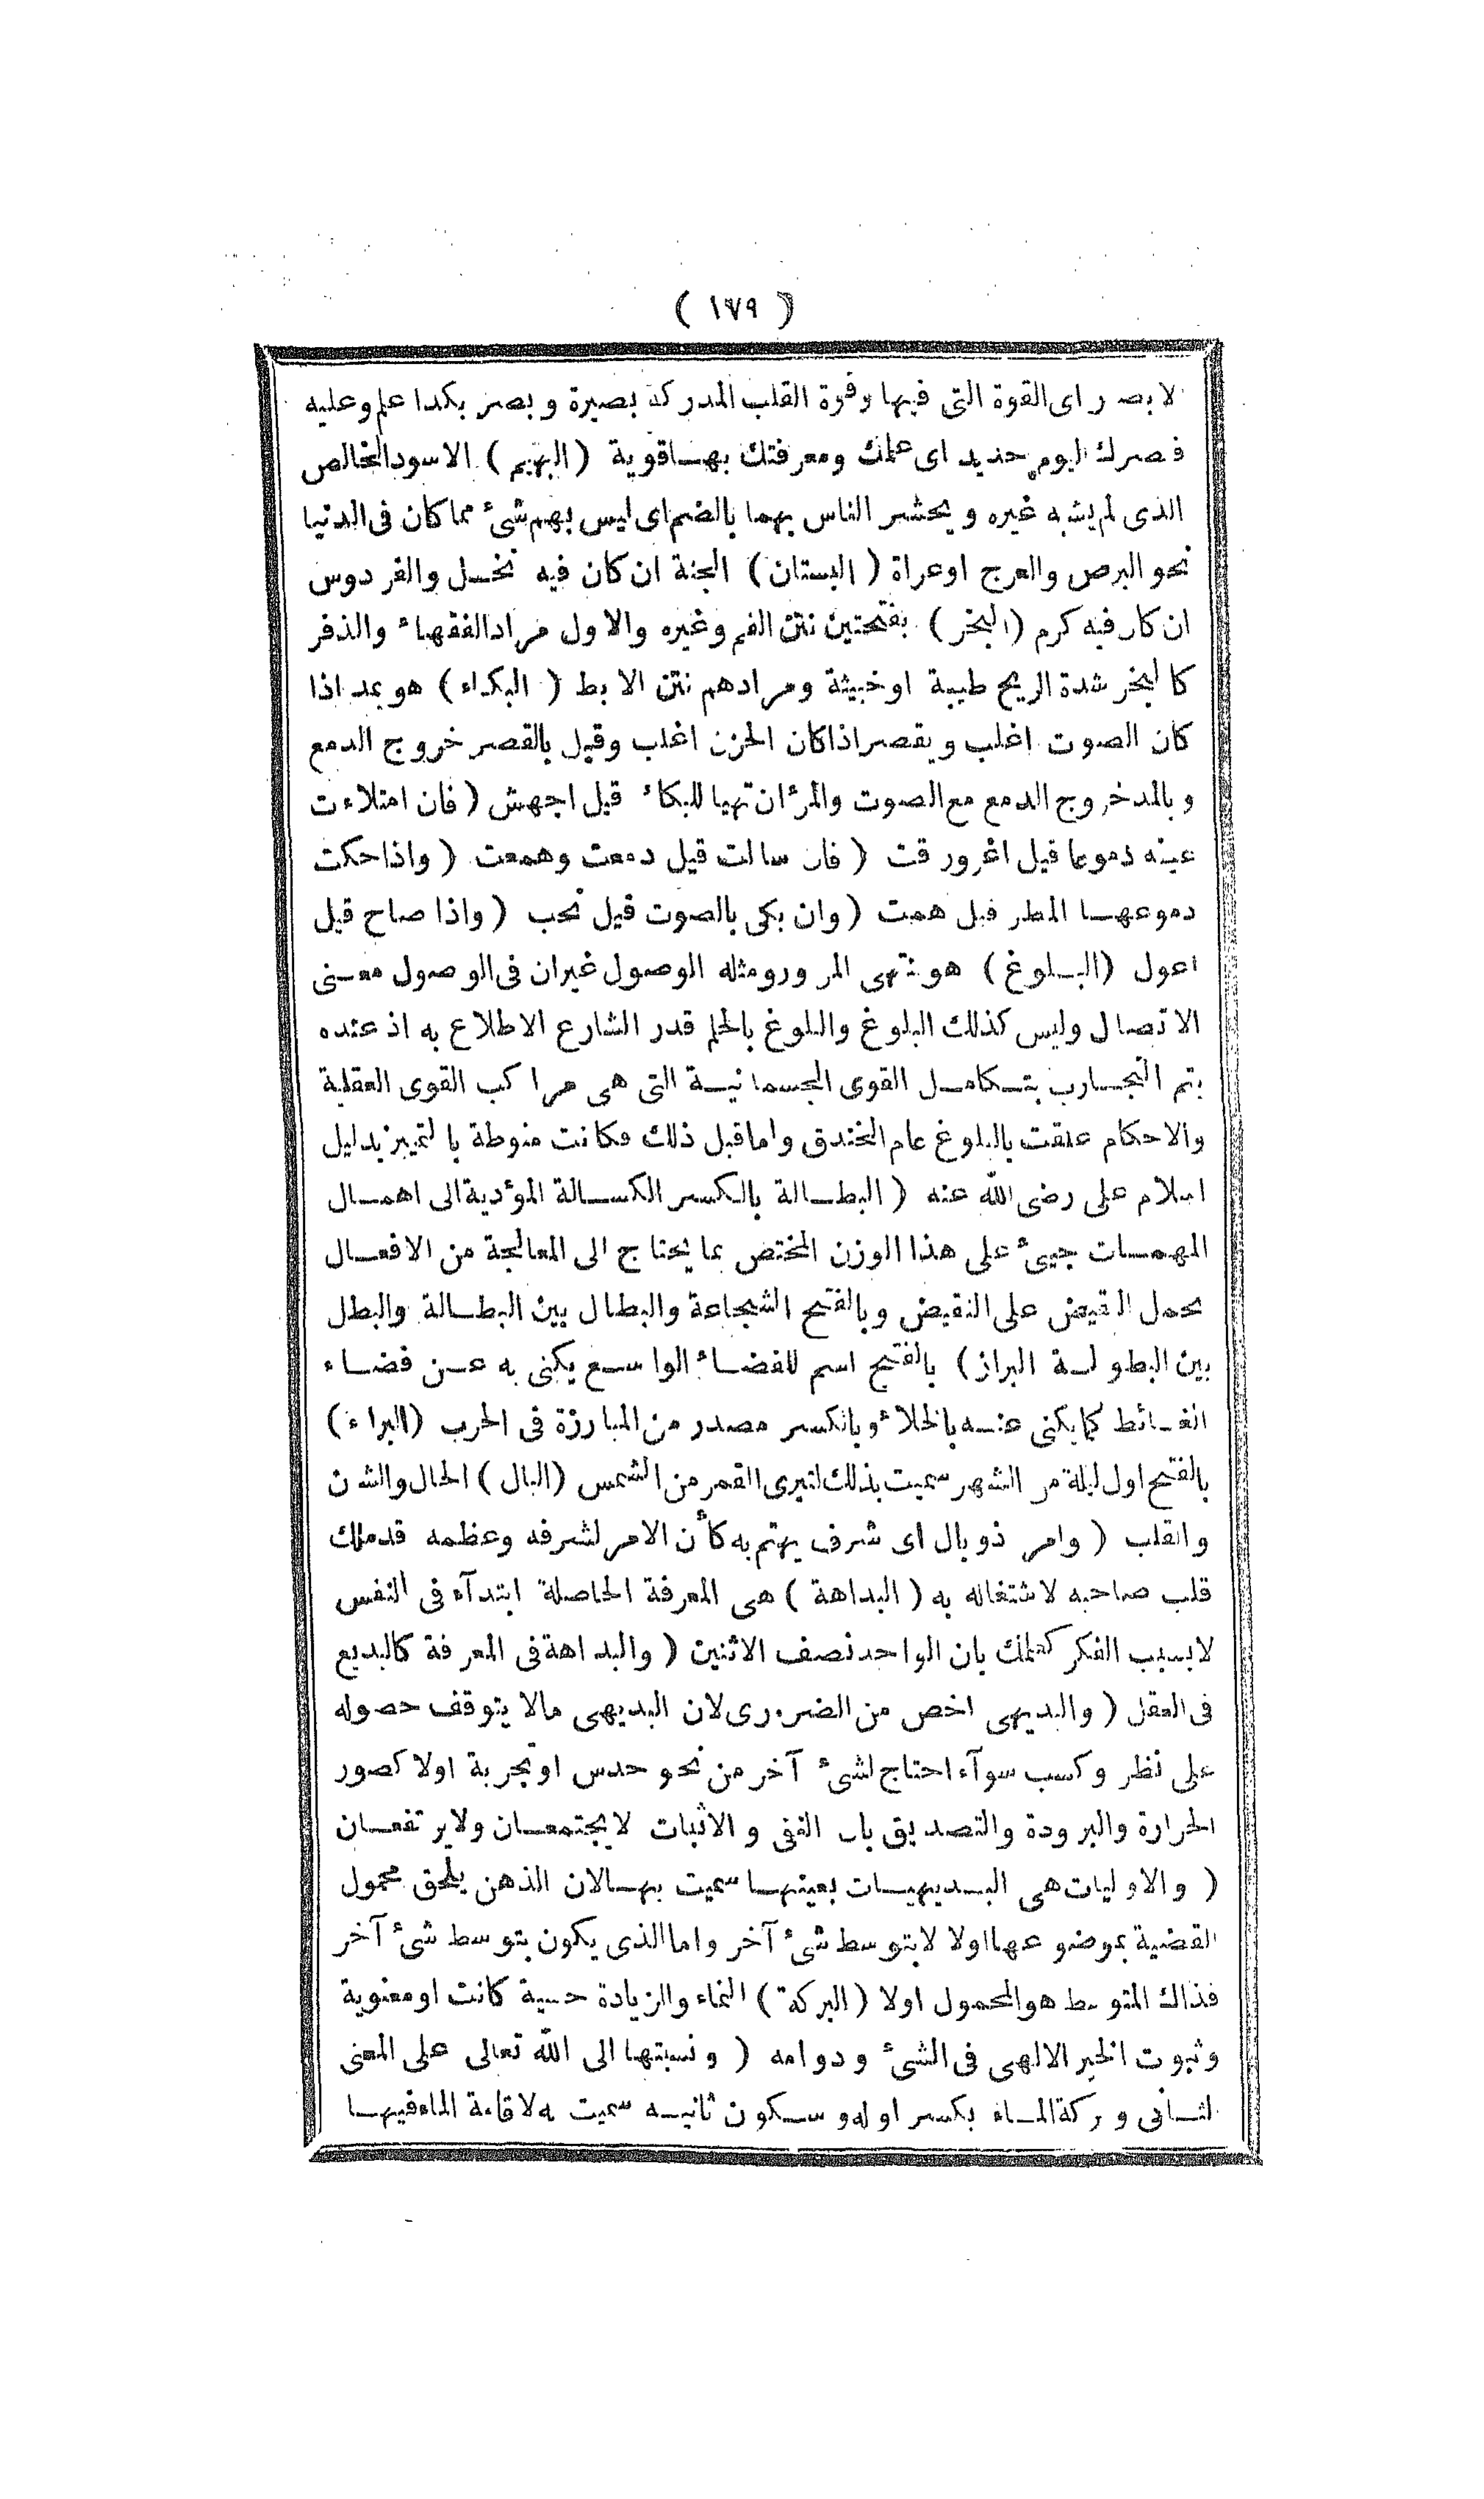 ( ١٧٩ )
لابصر اى القوة التى فيها وقوة القلب المدركة بصيرة وبصر بكذا علم وعليه
فبصرك اليوم حديد اى علمك ومعرفتك بهـا قوية ( البهيم ) الاسود الخالص
الذى لم يشبه غيره ويحشر الناس بهما بالضم اى ليس بهم شئ مما كان فى الدنيا
نحو البرص والعرج اوعراة ( البستان ) الجنة ان كان فيه نخـل والفردوس
ان كان فيه كرم ( البخر ) بفتحتين نتن الفم وغيره والاول مراد الفقهاء والذفر
كالبخر شدة الريح طيبة اوخبيثة ومرادهم نتن الابط ( البكاء ) هو يمد اذا
كان الصوت اغلب ويقصر اذا كان الحزن اغلب وقيل بالقصر خروج الدمع
وبالمد خروج الدمع مع الصوت والمرء ان تهيا للبكاء قيل اجهش ( فان امتلاءت
عينه دموعا قيل اغرورقت ( فان سالت قيل دمعت وهمعت ( واذا حكت
دموعهـا المطر قيل همت ( وان بكى بالصوت قيل نحب ( واذا صاح قيل
اعول ( البـلوغ ) هو منتهى المرور ومثله الوصول غيران فى الوصول معـنى
الاتصال وليس كذلك البلوغ والبلوغ بالحلم قدر الشارع الاطلاع به اذ عنده
يتم التجـارب بتـكامـل القوى الجسمانيـة التى هى مراكب القوى العقلية
والاحكام علقت بالبلوغ عام الخندق واما قبل ذلك فكانت منوطة بالتمييز بدليل
اسلام على رضى الله عنه ( البطـالة بالكسر الكسـالة المؤدية الى اهمـال
المهمـات جيئ على هذا الوزن المختص بما يحتاج الى المعالجة من الافعـال
بحمل النقيض على النقيض وبالفتح الشجاعة والبطال بين البطـالة والبطل
بين البطولـة البراز ) بالفتح اسم للفضـاء الواسـع يكنى به عـن فضـاء
الغـائط كما يكنى عنـه بالخلاء وبالكسر مصدر من المبارزة فى الحرب ( البراء )
بالفتح اول ليلة من الشهر سميت بذلك لتبرى القمر من الشمس ( البال ) الحال والشان
والقلب ( وامر ذوبال اى شرف يهتم به كأن الامر لشرفه وعظمه قدملك
قلب صاحبه لاشتغاله به ( البداهة ) هى المعرفة الحاصلة ابتدآء فى النفس
لابسبب الفكر كعلمك بان الواحد نصف الاثنين ( والبداهة فى المعرفة كالبديع
فى العقل ( والبديهى اخص من الضرورى لان البديهى مالا يتوقف حصوله
على نظر وكسب سوآء احتاج لشئ آخر من نحو حدس اوتجربة اولا كصور
الحرارة والبرودة والتصديق بان النفى والاثبات لايجتمعـان ولايرتفعـان
( والاوليات هى البـديهيـات بعينهـا سميت بهـا لان الذهن يلحق محمول
القضية بموضوعها اولا لابتوسط شئ آخر واما الذى يكون بتوسط شئ آخر
فذاك المتوسط هو المحمول اولا ( البركة ) النماء والزيادة حسية كانت اومعنوية
وثبوت الخير الالهى فى الشئ ودوامه ( ونسبتها الى الله تعالى على المعنى
لثـانى وبركة المـاء بكسر اوله وسـكون ثانيـه سميت به لاقامة الماء فيهـا